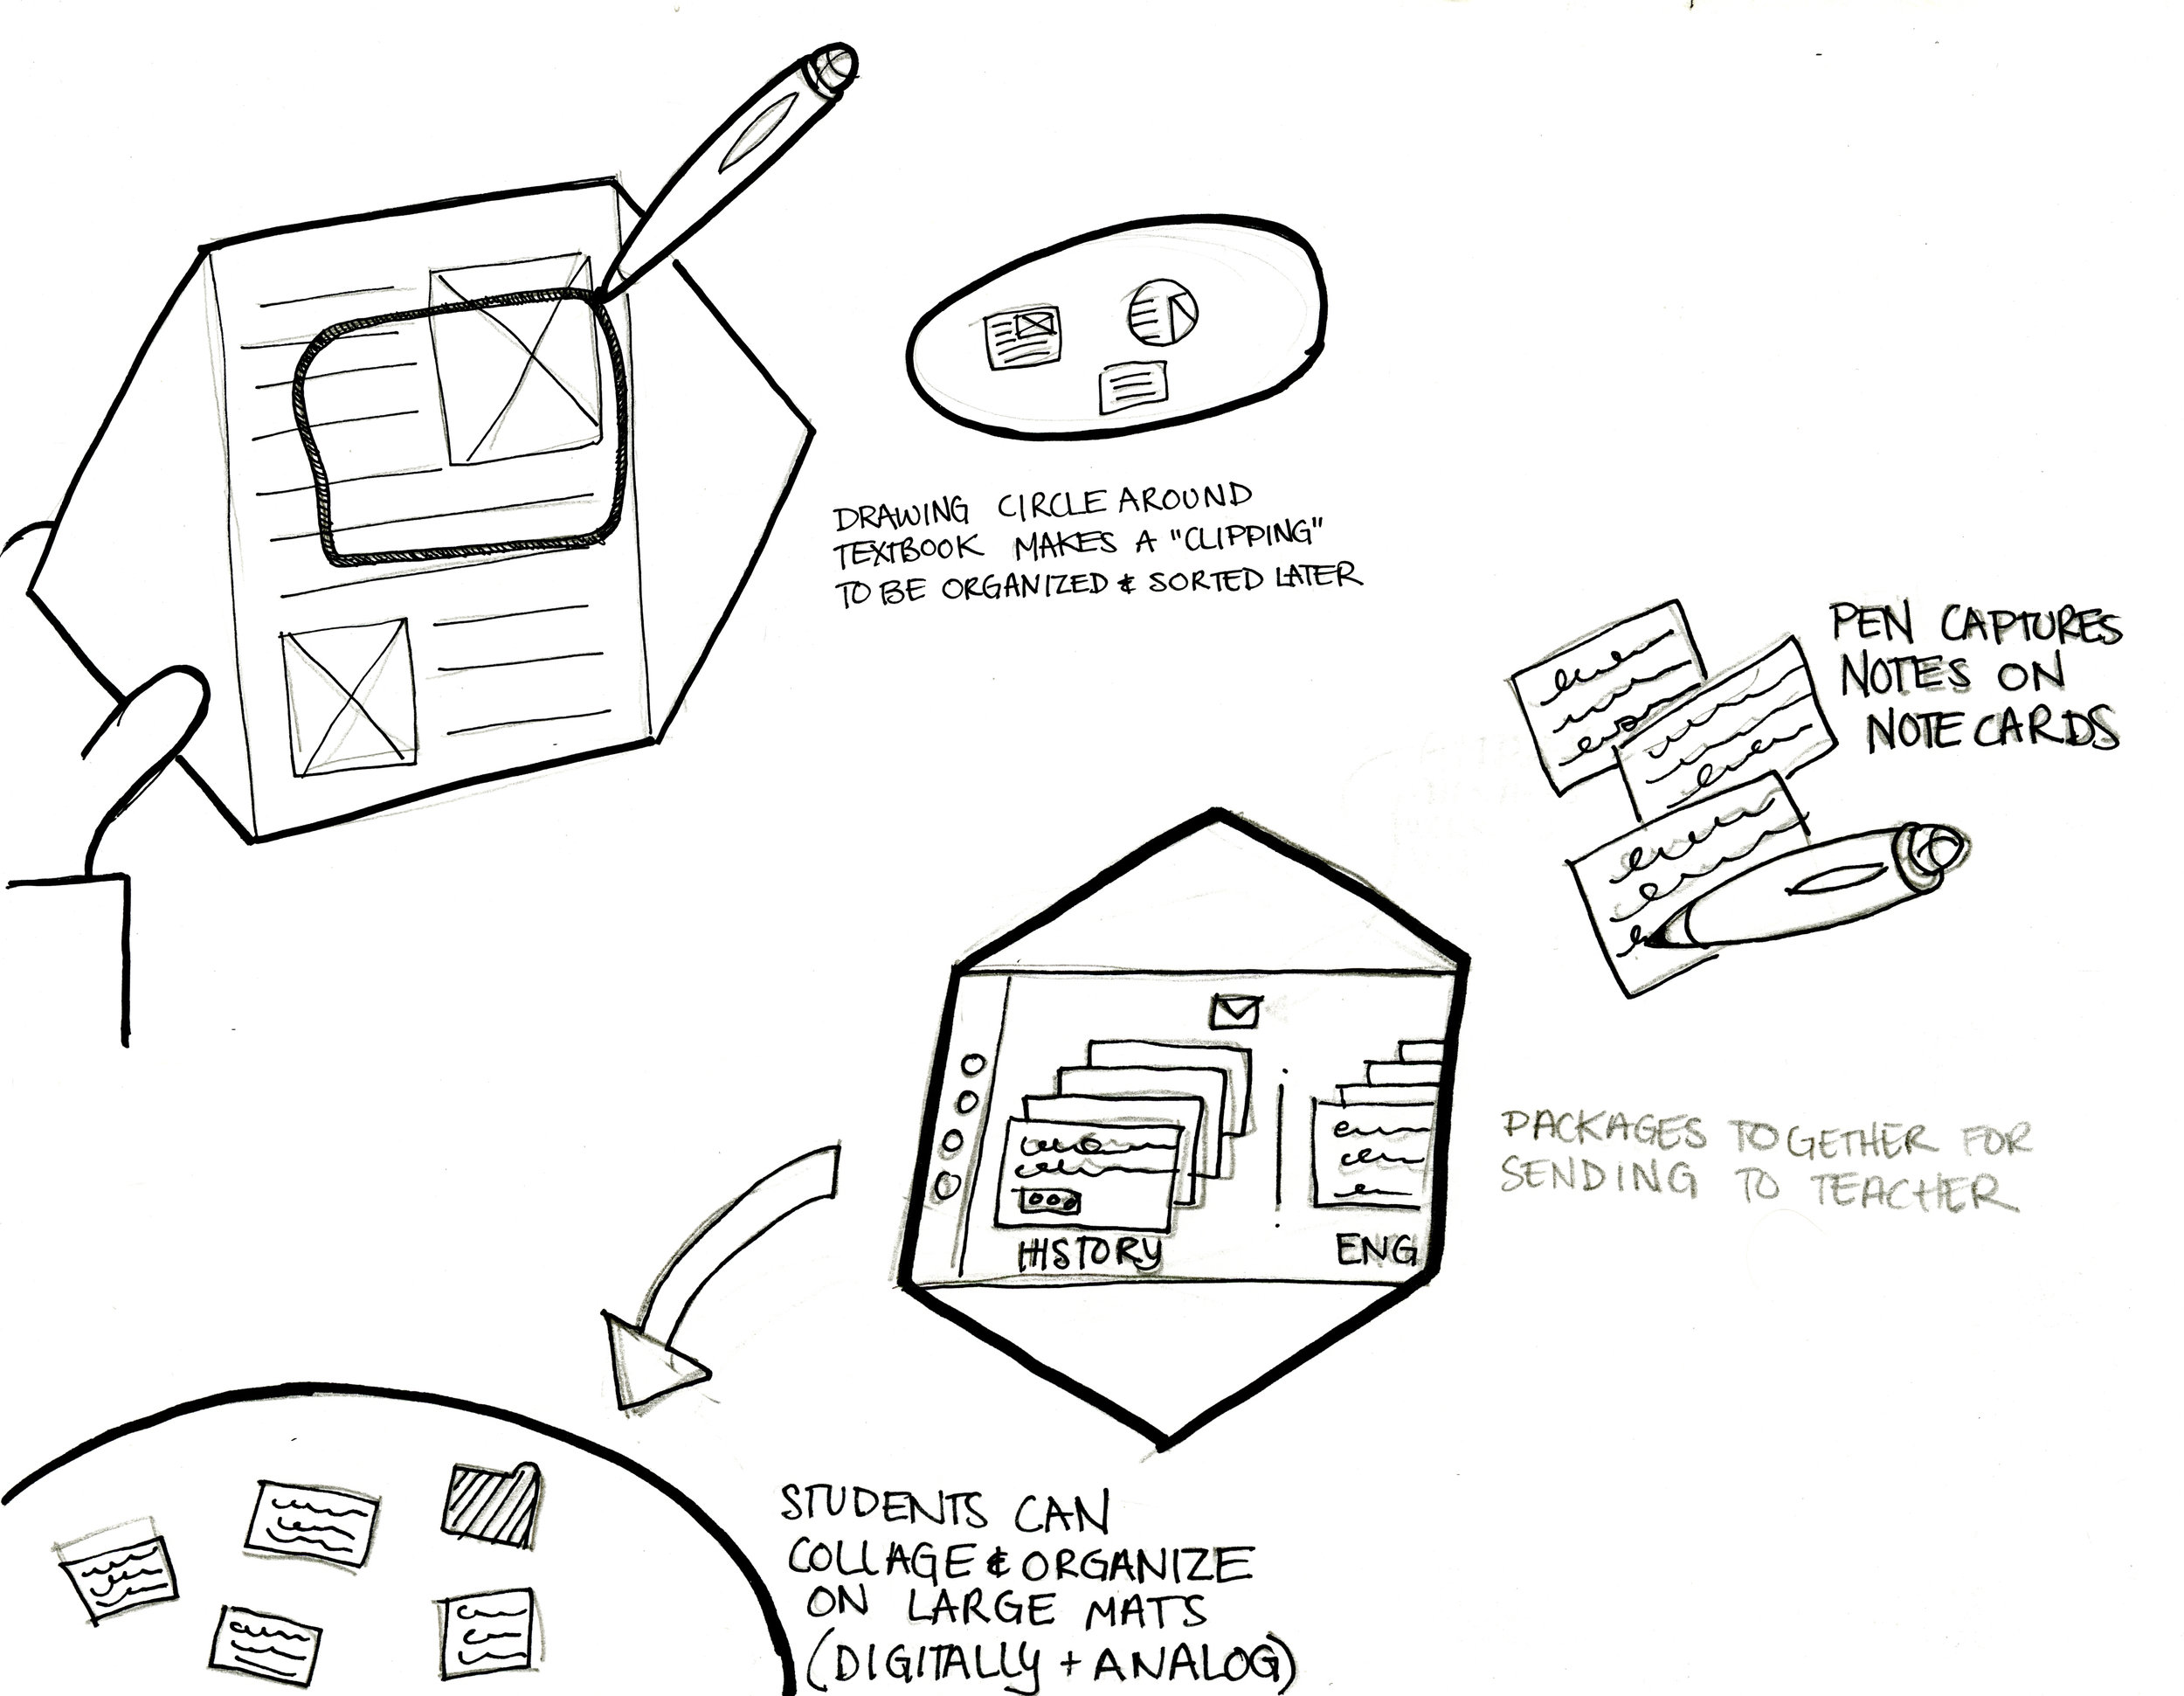 DRAWING CIRCLE AROUND
TEXTBOOK MAKES A "CLIPPING"
TO BE ORGANIZED & SORTED LATER
PEN CAPTURES
NOTES ON
NOTE CARDS
HISTORY
ENG
PACKAGES TOGETHER FOR
SENDING TO TEACHER
STUDENTS CAN
COLLAGE & ORGANIZE
ON LARGE MATS
(DIGITALLY + ANALOG)